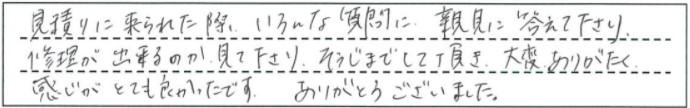 見積りに来られた際、いろんな質問に、親見に答えて下さり、
修理が出来るのか見て下さり、そうじまでして頂き、大変ありがたく、
感じがとても良かったです。 ありがとうございました。